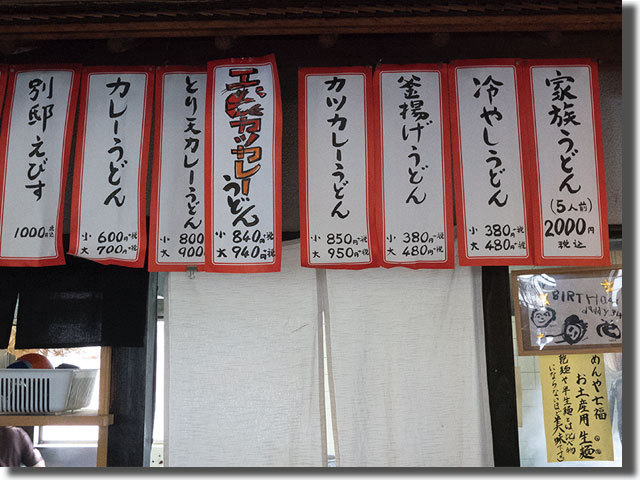 別邸えびす
1000円 税込
カレーうどん
小 600円+税
大 700円+税
とり天カレーうどん
小 800
大 900
エビカツカレーうどん
小 840円+税
大 940円+税
カツカレーうどん
小 850円+税
大 950円+税
釜揚げうどん
小 380円+税
大 480円+税
冷やしうどん
小 380円+税
大 480円+税
家族うどん
(5人前)
2000円
税込
BIRTH
めんや七福
お土産用 生麺
乾麺や半生麺とは比べ物
にならないほど美味です